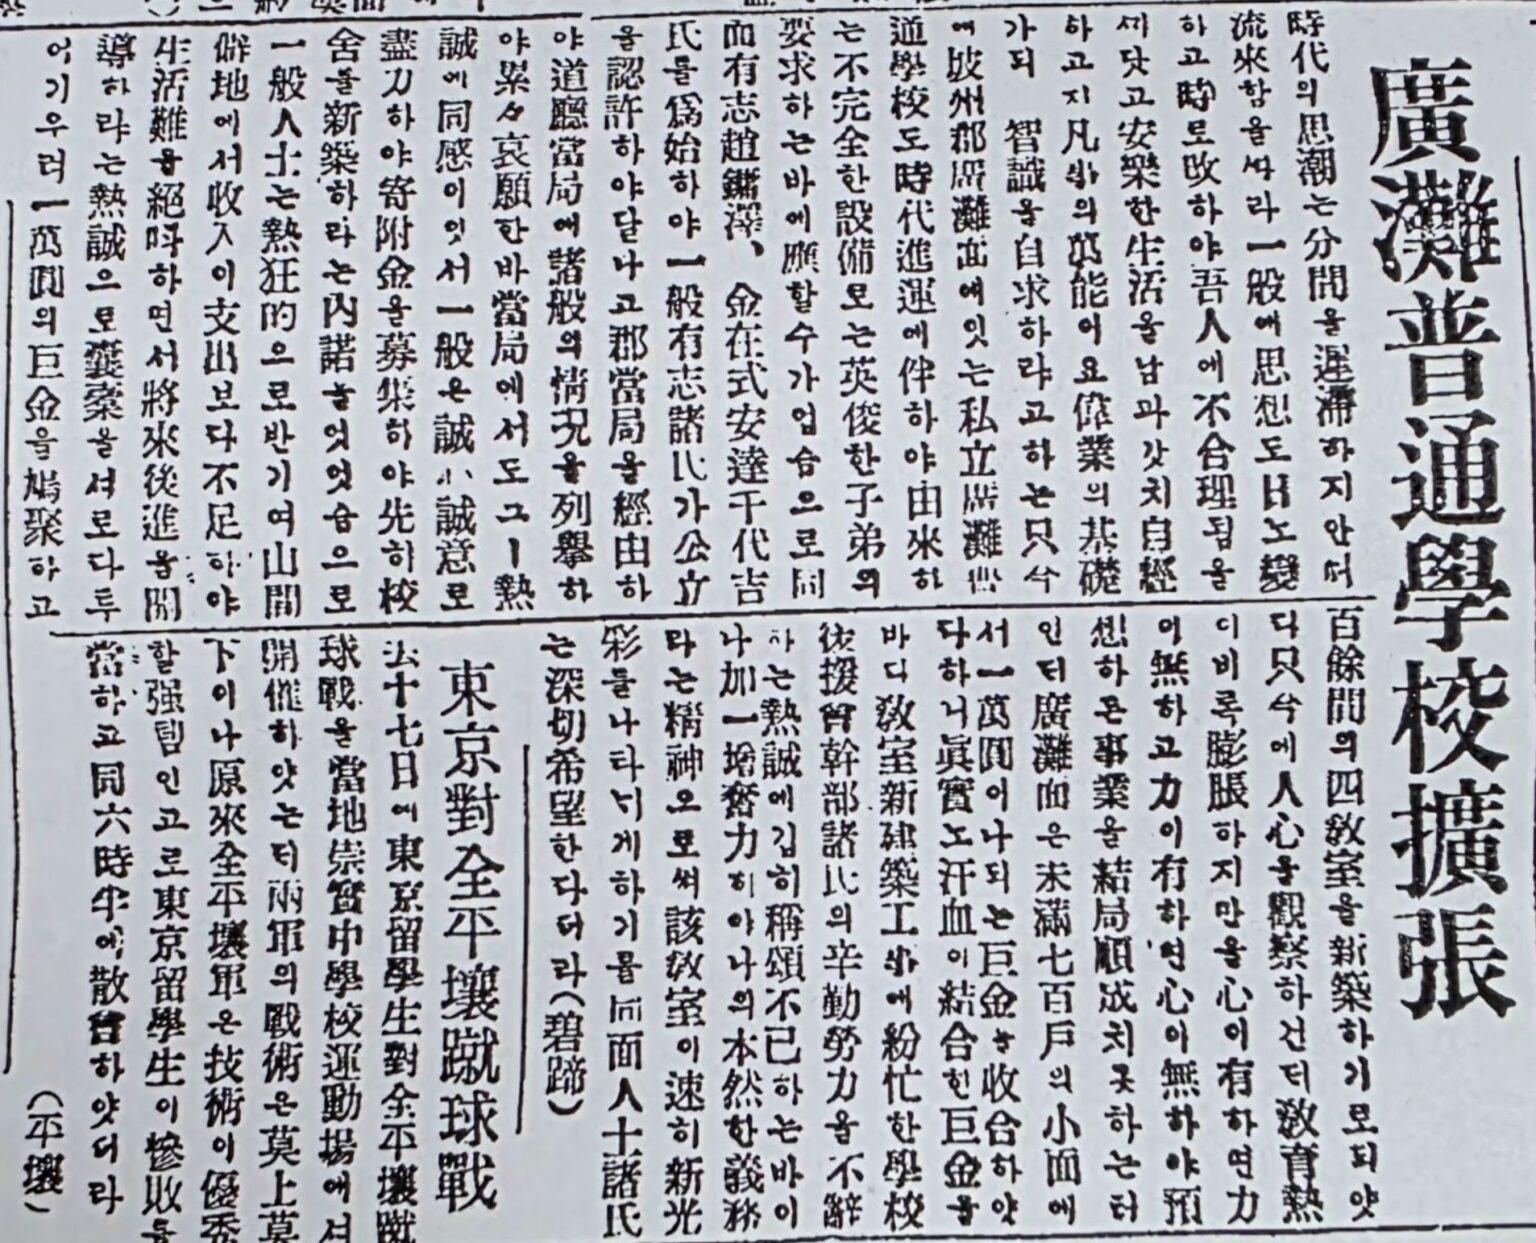 廣灘普通學校擴張
時代의思潮는分間을遲滯하지안터
流來함을ᄯᅡ라一般에思想도日노變
하고時로改하야吾人에不合理됨을
ᄭᅢ닷고安樂한生活을남과갓치自經
하고지凡ᄲᅢ의萬能어요偉業의基礎
가되 智識을自求하랴고하는只今
에坡州郡廣灘面에잇는私立廣灘普
通學校도時代進運에伴하야由來하
는不完全한設備로는英俊한子弟의
要求하는바에應할수가업슴으로同
面有志趙鏞澤、金在式安達千代吉
氏를爲始하야一般有志諸氏가公立
을認許하야달나고郡當局을經由하
야道廳當局에諸般의情况을列擧하
야累々哀願한바當局에서도그ㅣ熱
誠에同感이잇서一般은誠心誠意로
盡力하야寄附金을募集하야先히校
舍를新築하라는內諾을엇엇슴으로
一般人士는熱狂的으로반기여山間
僻地에서收入이支出보다不足하야
生活難을絕叫하면서將來後進을開
導하랴는熱誠으로囊槖을서로다투
어기우려一萬圓의巨金을鳩聚하고
百餘間의四敎室을新築하기로되얏
다只今에人心을觀察하건대敎育熱
이비록膨脹하지만을心이有하면力
이無하고力이有하면心이無하야預
想하든事業을結局順成치못하는터
인대廣灘面은未滿七百戶의小面에
서一萬圓이나되는巨金을收合하얏
다하니眞實노汗血이結合한巨金을
바더敎室新建築工ᄲᅢ에紛忙한學校
後援會幹部諸氏의辛勤勞力을不辭
하는熱誠에깁히稱頌不已하는바이
나加一增奮力히야나의本然한義務
라는精神으로써該敎室이速히新光
彩를나타너게하기를同面人士諸氏
는深切希望한다더라(碧蹄)
東京對全平壤蹴球戰
去十七日에東京留學生對全平壤蹴
球戰을當地崇實中學校運動場에서
開催하얏는대兩軍의戰術은莫上莫
下이나原來全平壤軍은技術이優秀
할强팀인고로東京留學生이慘敗를
當하고同六時半에散會하얏더라
(平壤)